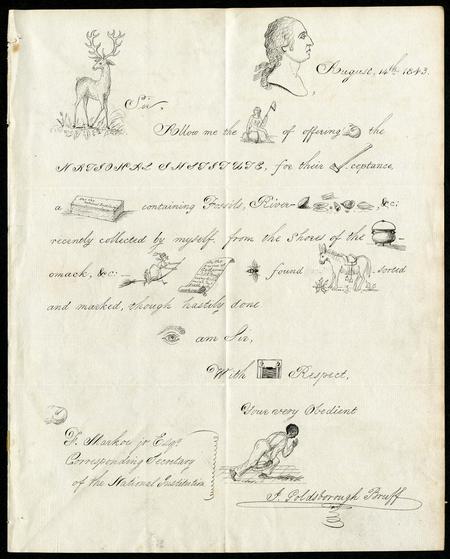 August, 14th 1843.
Sir,
Allow me the of offering the
NATIONAL INSTITUTE, for their ceptance,
a containing Fossils, River- &c:
recently collected by myself, from the Shores of the -
omack, &c:- found sorted
and marked, though hastily done.
am Sir,
With Respect,
Your very Obedient
F. Markoe jr Esqr
Corresponding Secretary
of the National Institution
J. Goldsborough Bruff